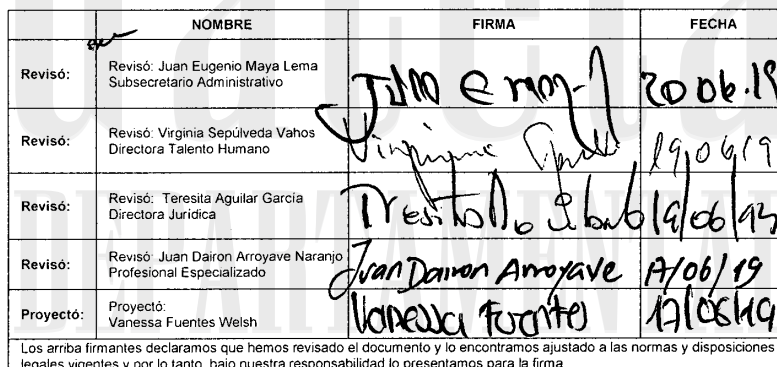 NOMBRE FIRMA FECHA
Revisó: Revisó: Juan Eugenio Maya Lema
Subsecretario Administrativo
20.06.19
Revisó: Revisó: Virginia Sepúlveda Vahos
Directora Talento Humano
Virginia
19/06/19
Revisó: Revisó: Teresita Aguilar García
Directora Jurídica
Revisó: Revisó: Juan Dairon Arroyave Naranjo
Profesional Especializado
Juan Dairon Arroyave 17/06/19
Proyectó: Proyectó:
Vanessa Fuentes Welsh
Vanessa Fuentes 17/06/19
Los arriba firmantes declaramos que hemos revisado el documento y lo encontramos ajustado a las normas y disposiciones
legales vigentes y por lo tanto, bajo nuestra responsabilidad lo presentamos para la firma